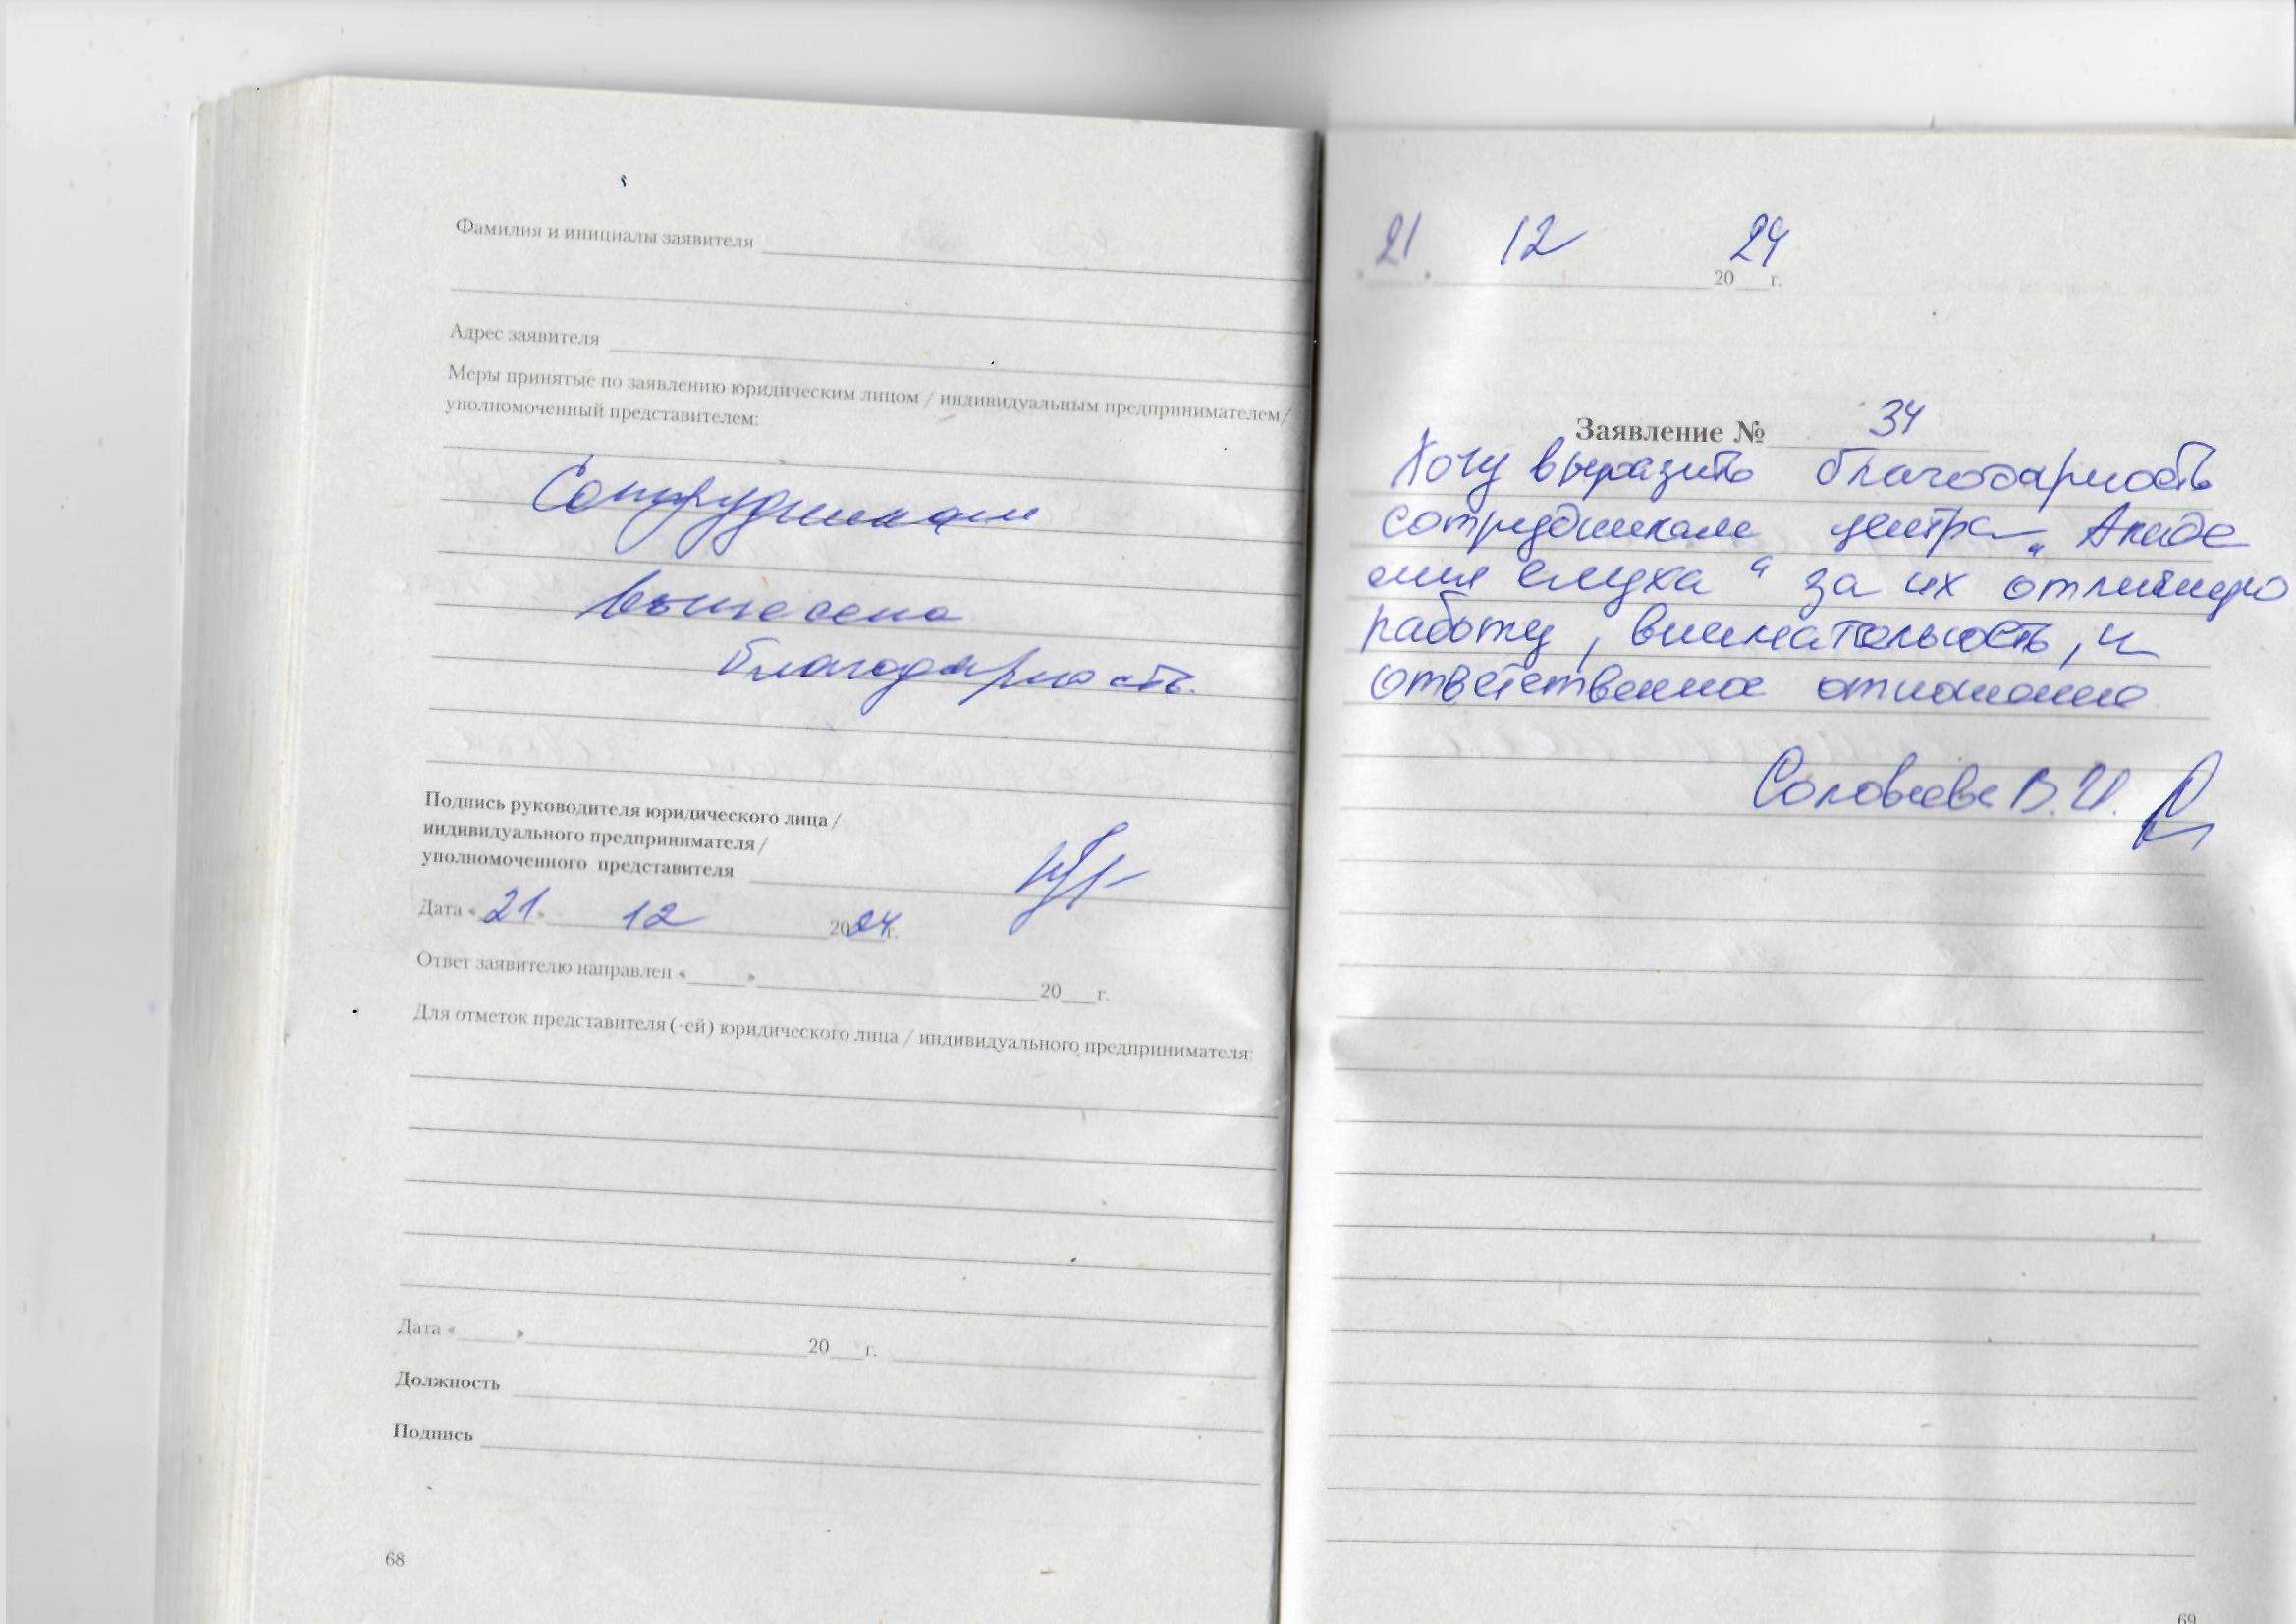 Фамилия и инициалы заявителя
Адрес заявителя
Меры принятые по заявлению юридическим лицом / индивидуальным предпринимателем/
уполномоченный представителем:
Сотрудникам
вынесена
благодарность.
Подпись руководителя юридического лица /
индивидуального предпринимателя /
уполномоченного представителя
Дата «21» 12 2024г.
Ответ заявителю направлен «___» 20___г.
Для отметок представителя (-ей) юридического лица / индивидуального предпринимателя:
Дата «___» 20___г.
Должность
Подпись
68
«21» 12 2024г.
Заявление № 34
Хочу выразить благодарность
сотрудникам центра „Акаде
мия слуха“ за их отличную
работу, внимательность, и
ответственное отношение
Соловьева В.И.
69